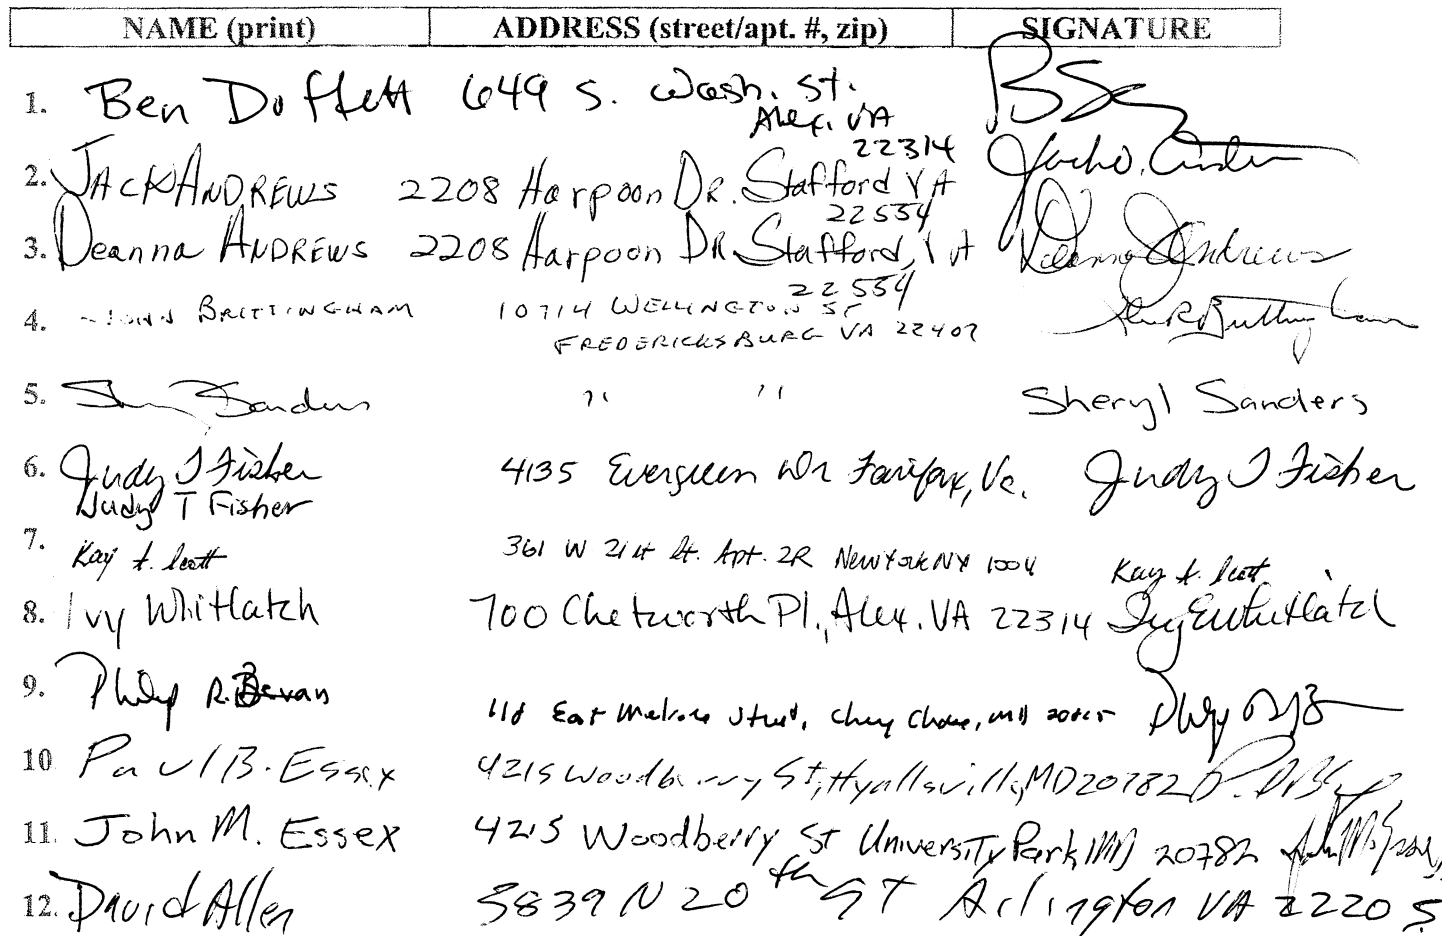 NAME (print) ADDRESS (street/apt. #, zip) SIGNATURE
1. Ben Duffett 649 S. Wash. St.
Alex. VA
22314
2. JACK ANDREWS 2208 Harpoon DR. Stafford VA
22554
3. Deanna ANDREWS 2208 Harpoon DR Stafford, VA Deanna Andrews
22554
4. JOHN BRITTINGHAM 10714 WELLINGTON ST
FREDERICKSBURG VA 22407
5. Sanders " " Sheryl Sanders
6. Judy T Fisher 4135 Evergreen Dr Fairfax, Va. Judy T Fisher
Judy T Fisher
7. Kay Scott 361 W 21st St. Apt. 2R New York NY Kay Scott
8. Ivy Whitlatch 700 Chetworth Pl., Alex. VA 22314 Ivy E Whitlatch
9. Philip R. Bevan East Melrose Street, Chevy Chase, MD 20815
10 Paul B. Essex 4215 Woodberry St, Hyattsville, MD 20782
11. John M. Essex 4215 Woodberry St University Park MD 20782
12. David Allen 5839 N 20th ST Arlington VA 22205